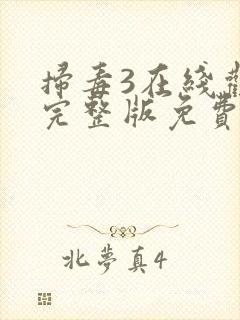 掃毒3在綫
完整版免費
北夢真4